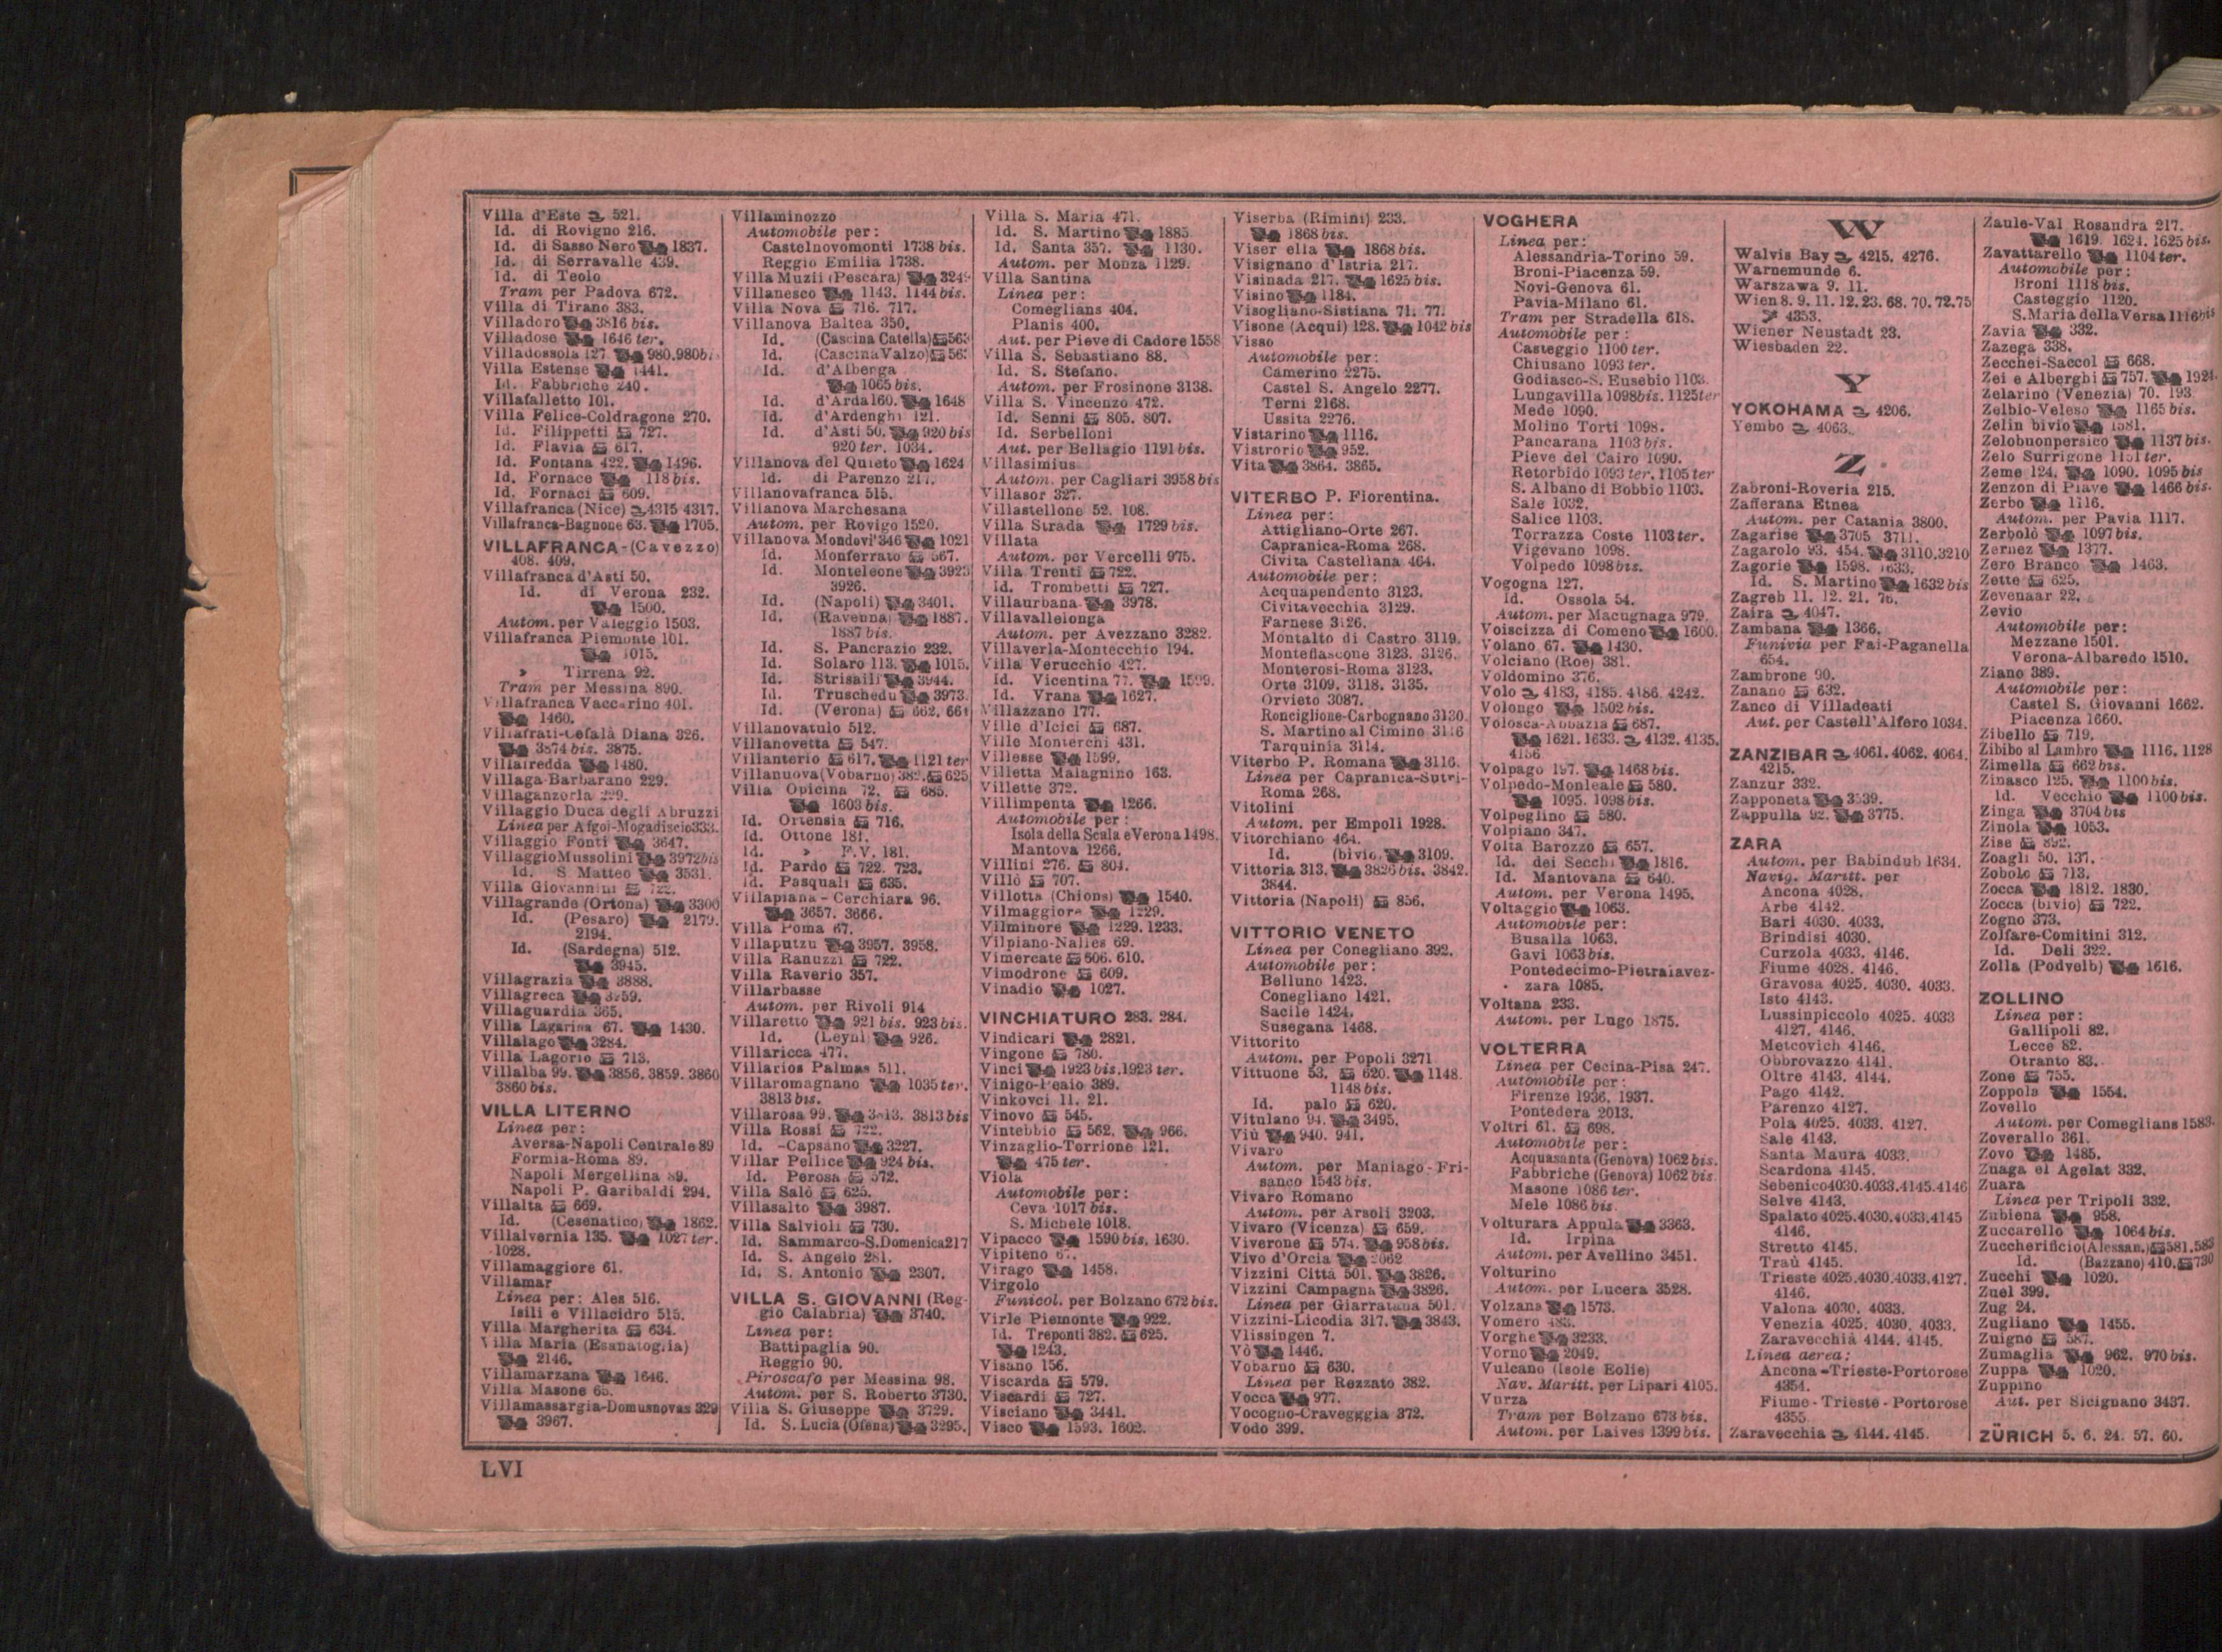 Villa d'Este 521.
Id. di Rovigno 216.
Id. di Sasso Nero 1837.
Id. di Serravalle 439.
Id. di Teolo
Tram per Padova 672.
Villa di Tirano 383.
Villadoro 3816 bis.
Villadose 1646 ter.
Villadossola 127. 980.980b
Villa Estense 1441.
Id. Fabbriche 240.
Villafalletto 101.
Villa Felice-Coldragone 270.
Id. Filippetti 727.
Id. Flavia 617.
Id. Fontana 422. 1496.
Id. Fornace 118 bis.
Id. Fornaci 609.
Villafranca (Nice) 4315 4317.
Villafranca-Bagnone 63. 1705.
VILLAFRANCA-(Cavezzo)
408. 409.
Villafranca d'Asti 50.
Id. di Verona 232.
1500.
Autom. per Valeggio 1503.
Villafranca Piemonte 101.
1015.
» Tirrena 92.
Tram per Messina 890.
Villafranca Vaccarino 401.
1460.
Villafrati-Cefalà Diana 326.
3874 bis. 3875.
Villafredda 1480.
Villaga-Barbarano 229.
Villaganzerla 229.
Villaggio Duca degli Abruzzi
Linea per Afgoi-Mogadiscio 333.
Villaggio Fonti 3647.
Villaggio Mussolini 3972bis
Id. S. Matteo 3531.
Villa Giovannini 722.
Villagrande (Ortona) 3300
Id. (Pesaro) 2179.
2194.
Id. (Sardegna) 512.
3945.
Villagrazia 3888.
Villagreca 3959.
Villaguardia 365.
Villa Lagarina 67. 1430.
Villalago 3284.
Villa Lagorio 713.
Villalba 99. 3856. 3859. 3860
3860 bis.
VILLA LITERNO
Linea per:
Aversa-Napoli Centrale 89
Formia-Roma 89.
Napoli Mergellina 89.
Napoli P. Garibaldi 294.
Villalta 669.
Id. (Cesenatico) 1862.
Villalvernia 135. 1027 ter.
1028.
Villamaggiore 61.
Villamar
Linea per: Ales 516.
Isili e Villacidro 515.
Villa Margherita 634.
Villa Maria (Esanatoglia)
2146.
Villamarzana 1646.
Villa Masone 65.
Villamassargia-Domusnovas 329
3967.
Villaminozzo
Automobile per:
Castelnovomonti 1738 bis.
Reggio Emilia 1738.
Villa Muzii (Pescara) 3249
Villanesco 1143. 1144 bis.
Villa Nova 716. 717.
Villanova Baltea 350.
Id. (Cascina Catella) 563
Id. (Cascina Valzo) 563
Id. d'Albenga
1065 bis.
Id. d'Arda 160. 1648
Id. d'Ardenghi 121.
Id. d'Asti 50. 920 bis
920 ter. 1034.
Villanova del Quieto 1624
Id. di Parenzo 217.
Villanovafranca 515.
Villanova Marchesana
Autom. per Rovigo 1520.
Villanova Mondovì 346 1021
Id. Monferrato 567.
Id. Monteleone 3925
3926.
Id. (Napoli) 3401.
Id. (Ravenna) 1887.
1887 bis.
Id. S. Pancrazio 232.
Id. Solaro 113. 1015.
Id. Strisaili 3944.
Id. Truschedu 3973.
Id. (Verona) 662. 664
Villanovatulo 512.
Villanovetta 547.
Villanterio 617. 1121 ter
Villanuova (Vobarno) 382. 625
Villa Opicina 72. 685.
1603 bis.
Id. Ortensia 716.
Id. Ottone 181.
Id. » F.V. 181.
Id. Pardo 722. 723.
Id. Pasquali 635.
Villapiana - Cerchiara 96.
3657. 3666.
Villa Poma 67.
Villaputzu 3957. 3958.
Villa Ranuzzi 722.
Villa Raverio 357.
Villarbasse
Autom. per Rivoli 914
Villaretto 921 bis. 923 bis.
Id. (Leyni) 926.
Villaricca 477.
Villarios Palmas 511.
Villaromagnano 1035 ter.
3813 bis.
Villarosa 99. 3813. 3813 bis
Villa Rossi 722.
Id. -Capsano 3227.
Villar Pellice 924 bis.
Id. Perosa 572.
Villa Salò 625.
Villasalto 3987.
Villa Salvioli 730.
Id. Sammarco-S.Domenica 217
Id. S. Angelo 281.
Id. S. Antonio 2307.
VILLA S. GIOVANNI (Reg-
gio Calabria) 3740.
Linea per:
Battipaglia 90.
Reggio 90.
Piroscafo per Messina 98.
Autom. per S. Roberto 3730.
Villa S. Giuseppe 3729.
Id. S. Lucia (Ofena) 3295.
Villa S. Maria 471.
Id. S. Martino 1885
Id. Santa 357. 1130.
Autom. per Monza 1129.
Villa Santina
Linea per:
Comeglians 404.
Planis 400.
Aut. per Pieve di Cadore 1558
Villa S. Sebastiano 88.
Id. S. Stefano.
Autom. per Frosinone 3138.
Villa S. Vincenzo 472.
Id. Senni 805. 807.
Id. Serbelloni
Aut. per Bellagio 1191 bis.
Villasimius
Autom. per Cagliari 3958 bis
Villasor 327.
Villastellone 52. 108.
Villa Strada 1729 bis.
Villata
Autom. per Vercelli 975.
Villa Trenti 722.
Id. Trombetti 727.
Villaurbana 3978.
Villavallelonga
Autom. per Avezzano 3282.
Villaverla-Montecchio 194.
Villa Verucchio 427.
Id. Vicentina 77. 1599.
Id. Vrana 1627.
Villazzano 177.
Ville d'Icici 687.
Ville Monterchi 431.
Villesse 1599.
Villetta Malagnino 163.
Villette 372.
Villimpenta 1266.
Automobile per:
Isola della Scala e Verona 1498.
Mantova 1266.
Villini 276. 804.
Villò 707.
Villotta (Chions) 1540.
Vilmaggiore 1229.
Vilminore 1229. 1233.
Vilpiano-Nalles 69.
Vimercate 606. 610.
Vimodrone 609.
Vinadio 1027.
VINCHIATURO 283. 284.
Vindicari 2821.
Vingone 780.
Vinci 1923 bis. 1923 ter.
Vinigo-Peaio 389.
Vinkovci 11. 21.
Vinovo 545.
Vintebbio 562. 966.
Vinzaglio-Torrione 121.
475 ter.
Viola
Automobile per:
Ceva 1017 bis.
S. Michele 1018.
Vipacco 1590 bis. 1630.
Vipiteno 67.
Virago 1458.
Virgolo
Funicol. per Bolzano 672 bis.
Virle Piemonte 922.
Id. Treponti 382. 625.
1243.
Visano 156.
Viscarda 579.
Viscardi 727.
Visciano 3441.
Visco 1593. 1602.
Viserba (Rimini) 233.
1868 bis.
Viser ella 1868 bis.
Visignano d'Istria 217.
Visinada 217. 1625 bis.
Visino 1184.
Visogliano-Sistiana 71. 77.
Visone (Acqui) 128. 1042 bis
Visso
Automobile per:
Camerino 2275.
Castel S. Angelo 2277.
Terni 2168.
Ussita 2276.
Vistarino 1116.
Vistrorio 952.
Vita 3864. 3865.
VITERBO P. Florentina.
Linea per:
Attigliano-Orte 267.
Capranica-Roma 268.
Civita Castellana 464.
Automobile per:
Acquapendente 3123.
Civitavecchia 3129.
Farnese 3126.
Montalto di Castro 3119.
Montefiascone 3123. 3126.
Monterosi-Roma 3123.
Orte 3109. 3118. 3135.
Orvieto 3087.
Ronciglione-Carbognano 3130
S. Martino al Cimino 3116
Tarquinia 3114.
Viterbo P. Romana 3116.
Linea per Capranica-Sutri-
Roma 268.
Vitolini
Autom. per Empoli 1928.
Vitorchiano 464.
Id. (bivio) 3109.
Vittoria 313. 3826 bis. 3842.
3844.
Vittoria (Napoli) 856.
VITTORIO VENETO
Linea per Conegliano 392.
Automobile per:
Belluno 1423.
Conegliano 1421.
Sacile 1424.
Susegana 1468.
Vittorito
Autom. per Popoli 3271
Vittuone 53. 620. 1148.
1148 bis.
Id. palo 620.
Vitulano 94. 3495.
Viù 940. 941.
Vivaro
Autom. per Maniago-Fri-
sanco 1543 bis.
Vivaro Romano
Autom. per Arsoli 3203.
Vivaro (Vicenza) 659.
Viverone 574. 958 bis.
Vivo d'Orcia 2062
Vizzini Città 501. 3826.
Vizzini Campagna 3826.
Linea per Giarratana 501.
Vizzini-Licodia 317. 3843.
Vlissingen 7.
Vò 1446.
Vobarno 630.
Linea per Rezzato 382.
Vocca 977.
Vocogno-Craveggia 372.
Vodo 399.
VOGHERA
Linea per:
Alessandria-Torino 59.
Broni-Piacenza 59.
Novi-Genova 61.
Pavia-Milano 61.
Tram per Stradella 618.
Automobile per:
Casteggio 1100 ter.
Chiusano 1093 ter.
Godiasco-S. Eusebio 1103.
Lungavilla 1098bis. 1125ter
Mede 1090.
Molino Torti 1098.
Pancarana 1103 bis.
Pieve del Cairo 1090.
Retorbido 1093 ter. 1105 ter
S. Albano di Bobbio 1103.
Sale 1032.
Salice 1103.
Torrazza Coste 1103 ter.
Vigevano 1098.
Volpedo 1098bis.
Vogogna 127.
Id. Ossola 54.
Autom. per Macugnaga 979.
Voiscizza di Comeno 1600.
Volano 67. 1430.
Volciano (Roe) 381.
Voldomino 376.
Volo 4183. 4185. 4186. 4242.
Volongo 1502 bis.
Volosca-Abbazia 687.
1621. 1633. 4132. 4135.
4156
Volpago 197. 1468 bis.
Volpedo-Monleale 580.
1095. 1098 bis.
Volpeglino 580.
Volpiano 347.
Volta Barozzo 657.
Id. dei Secchi 1816.
Id. Mantovana 640.
Autom. per Verona 1495.
Voltaggio 1063.
Automobile per:
Busalla 1063.
Gavi 1063 bis.
Pontedecimo-Pietralavez-
zara 1085.
Voltana 233.
Autom. per Lugo 1875.
VOLTERRA
Linea per Cecina-Pisa 247.
Automobile per:
Firenze 1936. 1937.
Pontedera 2013.
Voltri 61. 698.
Automobile per:
Acquasanta (Genova) 1062 bis.
Fabbriche (Genova) 1062 bis
Masone 1086 ter.
Mele 1086 bis.
Volturara Appula 3363.
Id. Irpina
Autom. per Avellino 3451.
Volturino
Autom. per Lucera 3528.
Volzana 1573.
Vomero 483.
Vorghe 3233.
Vorno 2049.
Vulcano (Isole Eolie)
Nav. Maritt. per Lipari 4105.
Vurza
Tram per Bolzano 673 bis.
Autom. per Laives 1399 bis.
W
Walvis Bay 4215. 4276.
Warnemunde 6.
Warszawa 9. 11.
Wien 8. 9. 11. 12. 23. 68. 70. 72. 75
4353.
Wiener Neustadt 23.
Wiesbaden 22.
Y
YOKOHAMA 4206.
Yembo 4063.
Z
Zabroni-Roveria 215.
Zafferana Etnea
Autom. per Catania 3800.
Zagarise 3705 3711.
Zagarolo 93. 454. 3110.3210
Zagorie 1598. 1633.
Id. S. Martino 1632 bis
Zagreb 11. 12. 21. 76.
Zaira 4047.
Zambana 1366.
Funivia per Fai-Paganella
654.
Zambrone 90.
Zanano 632.
Zanco di Villadeati
Aut. per Castell'Alfero 1034.
ZANZIBAR 4061. 4062. 4064.
4215.
Zanzur 332.
Zapponeta 3539.
Zappulla 92. 3775.
ZARA
Autom. per Babindub 1634.
Navig. Maritt. per
Ancona 4028.
Arbe 4142.
Bari 4030. 4033.
Brindisi 4030.
Curzola 4033. 4146.
Fiume 4028. 4146.
Gravosa 4025. 4030. 4033.
Isto 4143.
Lussinpiccolo 4025. 4033
4127. 4146.
Metcovich 4146.
Obbrovazzo 4141.
Oltre 4143. 4144.
Pago 4142.
Parenzo 4127.
Pola 4025. 4033. 4127.
Sale 4143.
Santa Maura 4033.
Scardona 4145.
Sebenico 4030.4033.4145.4146
Selve 4143.
Spalato 4025.4030.4033.4145
4146.
Stretto 4145.
Traù 4145.
Trieste 4025.4030.4033.4127.
4146.
Valona 4030. 4033.
Venezia 4025. 4030. 4033.
Zaravecchia 4144. 4145.
Linea aerea:
Ancona-Trieste-Portorose
4354.
Fiume-Trieste-Portorose
4355
Zaravecchia 4144. 4145.
Zaule-Val Rosandra 217.
1619. 1624. 1625 bis.
Zavattarello 1104 ter.
Automobile per:
Broni 1118 bis.
Casteggio 1120.
S. Maria della Versa 1116bis
Zavia 332.
Zazega 338.
Zecchei-Saccol 668.
Zei e Alberghi 757. 1924.
Zelarino (Venezia) 70. 193
Zelbio-Veleso 1165 bis.
Zelin bivio 1581.
Zelobuonpersico 1137 bis.
Zelo Surrigone 1151 ter.
Zeme 124. 1090. 1095 bis
Zenzon di Piave 1466 bis.
Zerbo 1116.
Autom. per Pavia 1117.
Zerbolò 1097 bis.
Zernez 1377.
Zero Branco 1463.
Zette 625.
Zevenaar 22.
Zevio
Automobile per:
Mezzane 1501.
Verona-Albaredo 1510.
Ziano 389.
Automobile per:
Castel S. Giovanni 1662.
Piacenza 1660.
Zibello 719.
Zibibo al Lambro 1116. 1128
Zimella 662 bis.
Zinasco 125. 1100 bis.
Id. Vecchio 1100 bis.
Zinga 3704 bis
Zinola 1053.
Zise 892.
Zoagli 50. 137.
Zobolo 713.
Zocca 1812. 1830.
Zocca (bivio) 722.
Zogno 373.
Zolfare-Comitini 312.
Id. Deli 322.
Zolla (Podvelb) 1616.
ZOLLINO
Linea per:
Gallipoli 82.
Lecce 82.
Otranto 83.
Zone 755.
Zoppola 1554.
Zovello
Autom. per Comeglians 1583.
Zoverallo 361.
Zovo 1485.
Zuaga el Agelat 332.
Zuara
Linea per Tripoli 332.
Zubiena 958.
Zuccarello 1064 bis.
Zuccherificio (Alessan.) 581.583
Id. (Bazzano) 410. 730
Zucchi 1020.
Zuel 399.
Zug 24.
Zugliano 1455.
Zuigno 587.
Zumaglia 962. 970 bis.
Zuppa 1020.
Zuppino
Aut. per Sicignano 3487.
ZÜRICH 5. 6. 24. 57. 60.
LVI